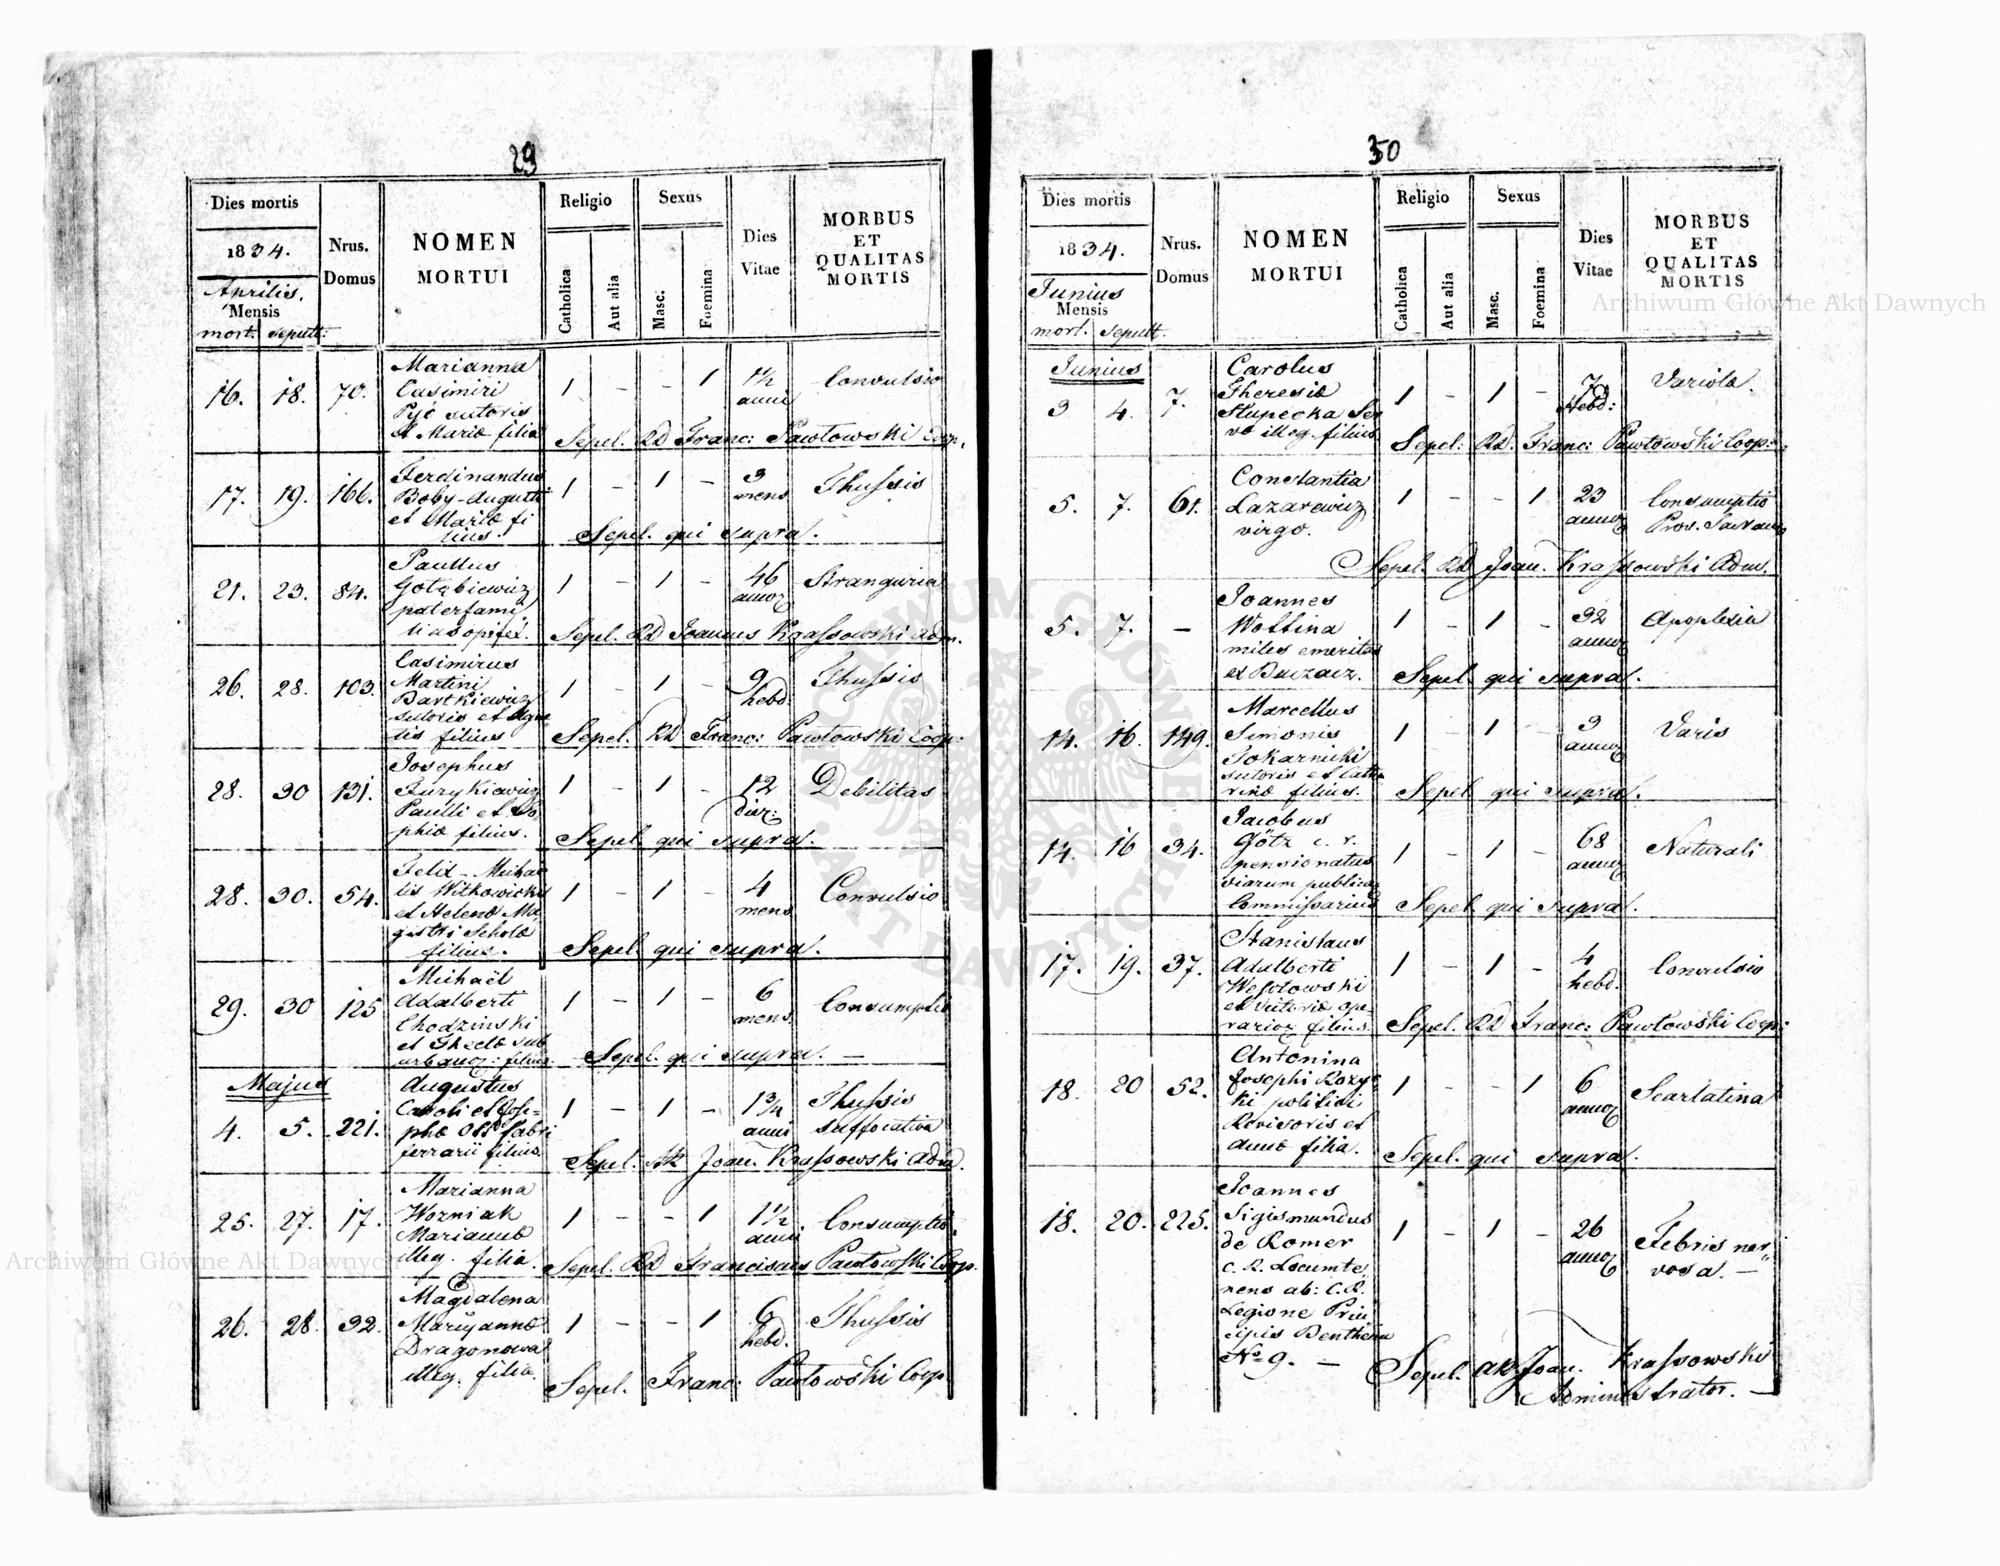 29
Dies mortis
1834.
Aprilis.
Mensis
mort. sepult:
Nrus.
Domus
NOMEN
MORTUI
Religio
Catholica
Aut alia
Sexus
Masc.
Foemina
Dies
Vitae
MORBUS
ET
QUALITAS
MORTIS
16. 18. 70. 1 - - 1 1½ anni Convulsio
Marianna
Casimiri
Pyć sutoris
et Mariæ filia
Sepel. Rd Franc: Pawłowski Coop.
17. 19. 166. 1 - 1 - 3 mens Thussis
Ferdinandus
Boby-Augusti
et Mariæ fi
lius.
Sepel. qui supra.
21. 23. 84. 1 - 1 - 46 annoꝝ Stranguria
Paullus
Gołąbiewicz
paterfami
lias opifex.
Sepel. Rd Joannes Krassowski Adm.
26. 28. 103. 1 - 1 - 9 hebd. Thussis
Casimirus
Martini
Bartkiewicz
sutoris et Agne
tis filius
Sepel. Rd Franc: Pawłowski Coop:
28. 30 131. 1 - 1 - 12 dier: Debilitas
Josephus
Paulli et So
phiæ filius.
Sepel. qui supra.
28. 30. 54. 1 - 1 - 4 mens Convulsio
Felix-Michae
lis Witkowicki
et Helenæ Ma
gistri Scholæ
filius.
Sepel. qui supra.
29. 30 125 1 - 1 - 6 mens. Consumptio
Michaël
Adalberti
Chodzinski
et Theclæ sub
urbanoꝝ: filius
Sepel. qui supra. —
Majus
4. 5. 221. 1 - 1 - 1¾ anni Thussis suffocativa
Augustus
Caroli et Jose=
phæ Ott fabri
ferrarii filius.
Sepel. Joan. Krassowski Adm.
25. 27. 17. 1 - - 1 1½ anni Consumptio.
Marianna
Wozniak
Mariannæ
illeg. filia.
Sepel. Rd Franciscus Pawłowski Coop.
26. 28. 32. 1 - - 1 6 hebd. Thussis
Magdalena
Maryannæ
Dragonowa
illeg. filia.
Sepel. Franc: Pawłowski Coop.
30
Dies mortis
1834.
Junius
Mensis
mort. sepult.
Nrus.
Domus
NOMEN
MORTUI
Religio
Catholica
Aut alia
Sexus
Masc.
Foemina
Dies
Vitae
MORBUS
ET
QUALITAS
MORTIS
Junius
3 4. 7. 1 - 1 - 7 Hebd: Variola.
Carolus
Theresiæ
Słupecka Ser
væ illeg. filius
Sepel: Rd. Franc: Pawłowski Coop:
5. 7. 61. 1 - - 1 23 annoꝝ Consumptio
Constantia
Lazarewicz
virgo.
Sepel. Rd Joan. Krassowski Adm.
5. 7. - 1 - 1 - 32 annoꝝ Apoplexia
Joannes
Wottina
miles emeritus
ex Buczacz.
Sepel. qui supra.
14. 16. 149. 1 - 1 - 3 annoꝝ Varis
Marcellus
Simonis
Tokarnicki
sutoris et Catha
rinæ filius.
Sepel. qui supra.
14. 16 34. 1 - 1 - 68 annoꝝ Naturali
Jacobus
Götz c. r.
pensionatus
viarum publicaꝝ
Commissarius
Sepel. qui supra.
17. 19. 37. 1 - 1 - 4 hebd. Convulsio
Stanislaus
Adalberti
Wesołowski
et Victoriæ ope-
rarioꝝ filius.
Sepel. Rd Franc: Pawłowski Coop:
18. 20 52. 1 - - 1 6 annoꝝ Scarlatina
Antonina
Josephi Rozyc
ki politici
Revisoris et
Annæ filia.
Sepel. qui supra.
18. 20. 225. 1 - 1 - 26 annoꝝ Febris ner=
vosa. —
Joannes
Sigismundus
de Romer
c. R. Locumte
nens ab: C.R.
Legione Prin
cipis Bentheim
No 9. —
Sepel. Joan. Krassowski
Administrator. —
Archiwum Główne Akt Dawnych
Archiwum Główne Akt Dawnych
ARCHIWUM GŁÓWNE
AKT DAWNYCH